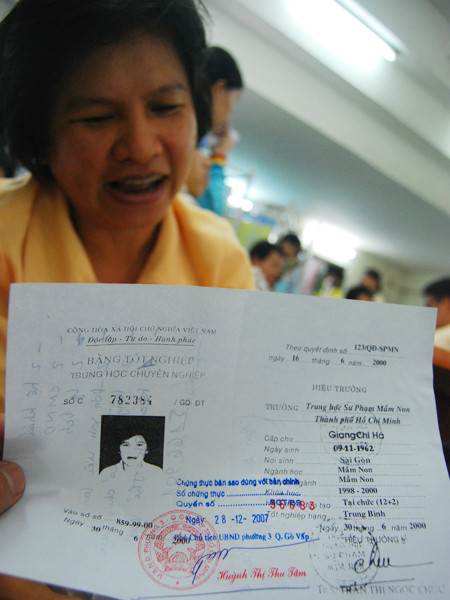 CỘNG HÒA XÃ HỘI CHỦ NGHĨA VIỆT NAM
Độc lập - Tự do - Hạnh phúc
BẰNG TỐT NGHIỆP
TRUNG HỌC CHUYÊN NGHIỆP
SỐ C 782384 / GD-ĐT
Chứng thực bản sao đúng với bản chính
Số chứng thực
Quyển số
Ngày: 28 -12- 2007
Vào sổ số 859-99-00
Ngày 30 tháng 6 năm 2000
Phó Chủ tịch UBND phường 3 Q. Gò Vấp
Huỳnh Thị Thu Tâm
Theo quyết định số 123/QĐ-SPMN
ngày 16 tháng 6 năm 2000
HIỆU TRƯỞNG
TRƯỜNG Trung học Sư Phạm Mầm Non
Thành phố Hồ Chí Minh
Cấp cho Giang Chi Hà
Ngày sinh 09-11-1962
Nơi sinh Sài Gòn
Ngành học Mầm Non
ngành Mầm Non
Khóa học 1998 - 2000
Tại chức (12+2)
Tốt nghiệp hạng Trung Bình
Ngày 30 tháng 6 năm 2000
HIỆU TRƯỞNG